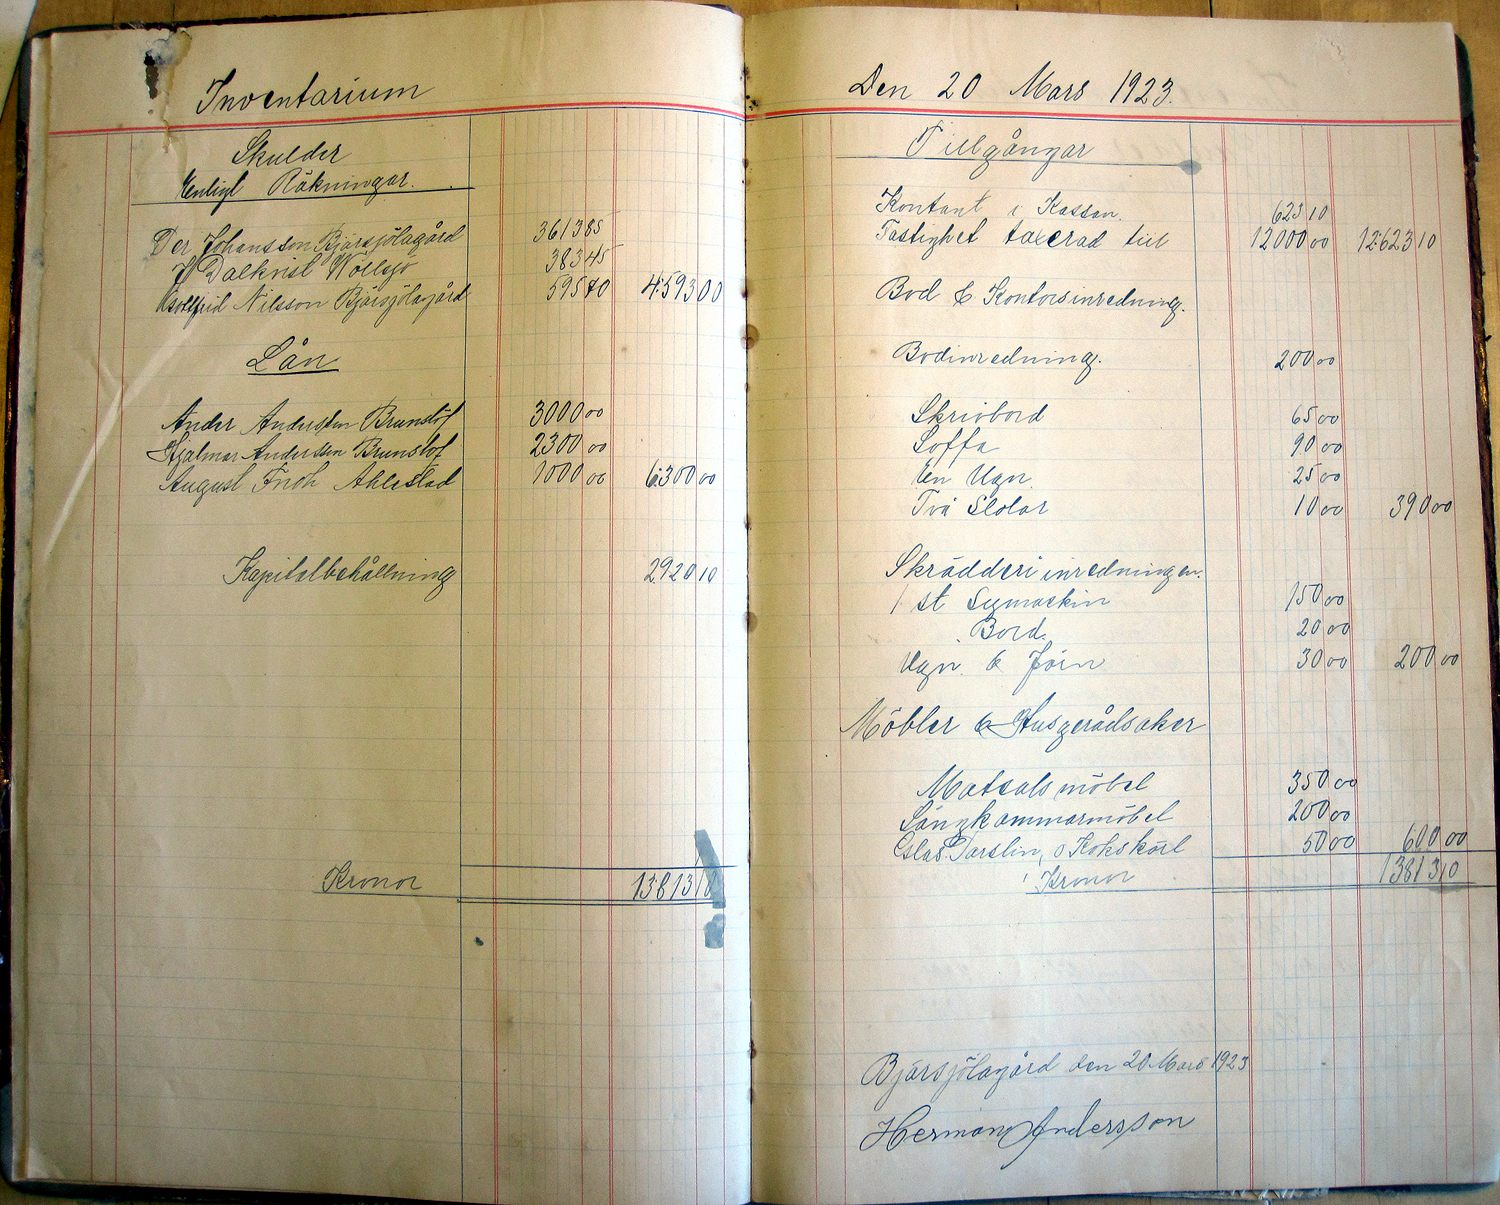 Inventarium
Skulder
Enligt Räkningar.
Per. Johansson Bjärsjölagård 3613 85
H Dalkvist Wollsjö 383 45
Gottfrid Nilsson Bjärsjölagård 595 70 4593 00
Lån
Ander Andersson Brunslöf 3000 00
Hjalmar Andersson Brunslöf 2300 00
August Ahlestad 1000 00 6300 00
Kapitalbehållning 2920 10
Kronor 13813 10
Den 20 Mars 1923.
Tillgångar
Kontant i Kassan. 623 10
Fastighet taxerad till 12000 00 12623 10
Bod & Kontorsinredning.
Bodinredning. 200 00
Skrivbord 65 00
Soffa 90 00
En Ugn. 25 00
Två Stolar 10 00 390 00
Skrädderi inredningen.
1 st Symaskin 150 00
Bord. 20 00
Ugn. & Järn 30 00 200 00
Möbler & Husgerådsaker
Matsals möbel 350 00
Sängkammarmöbel 200 00
Glas. Porslin, o Kokskärl 50 00 600 00
Kronor 13813 10
Bjärsjölagård den 20 Mars 1923
Herman Andersson